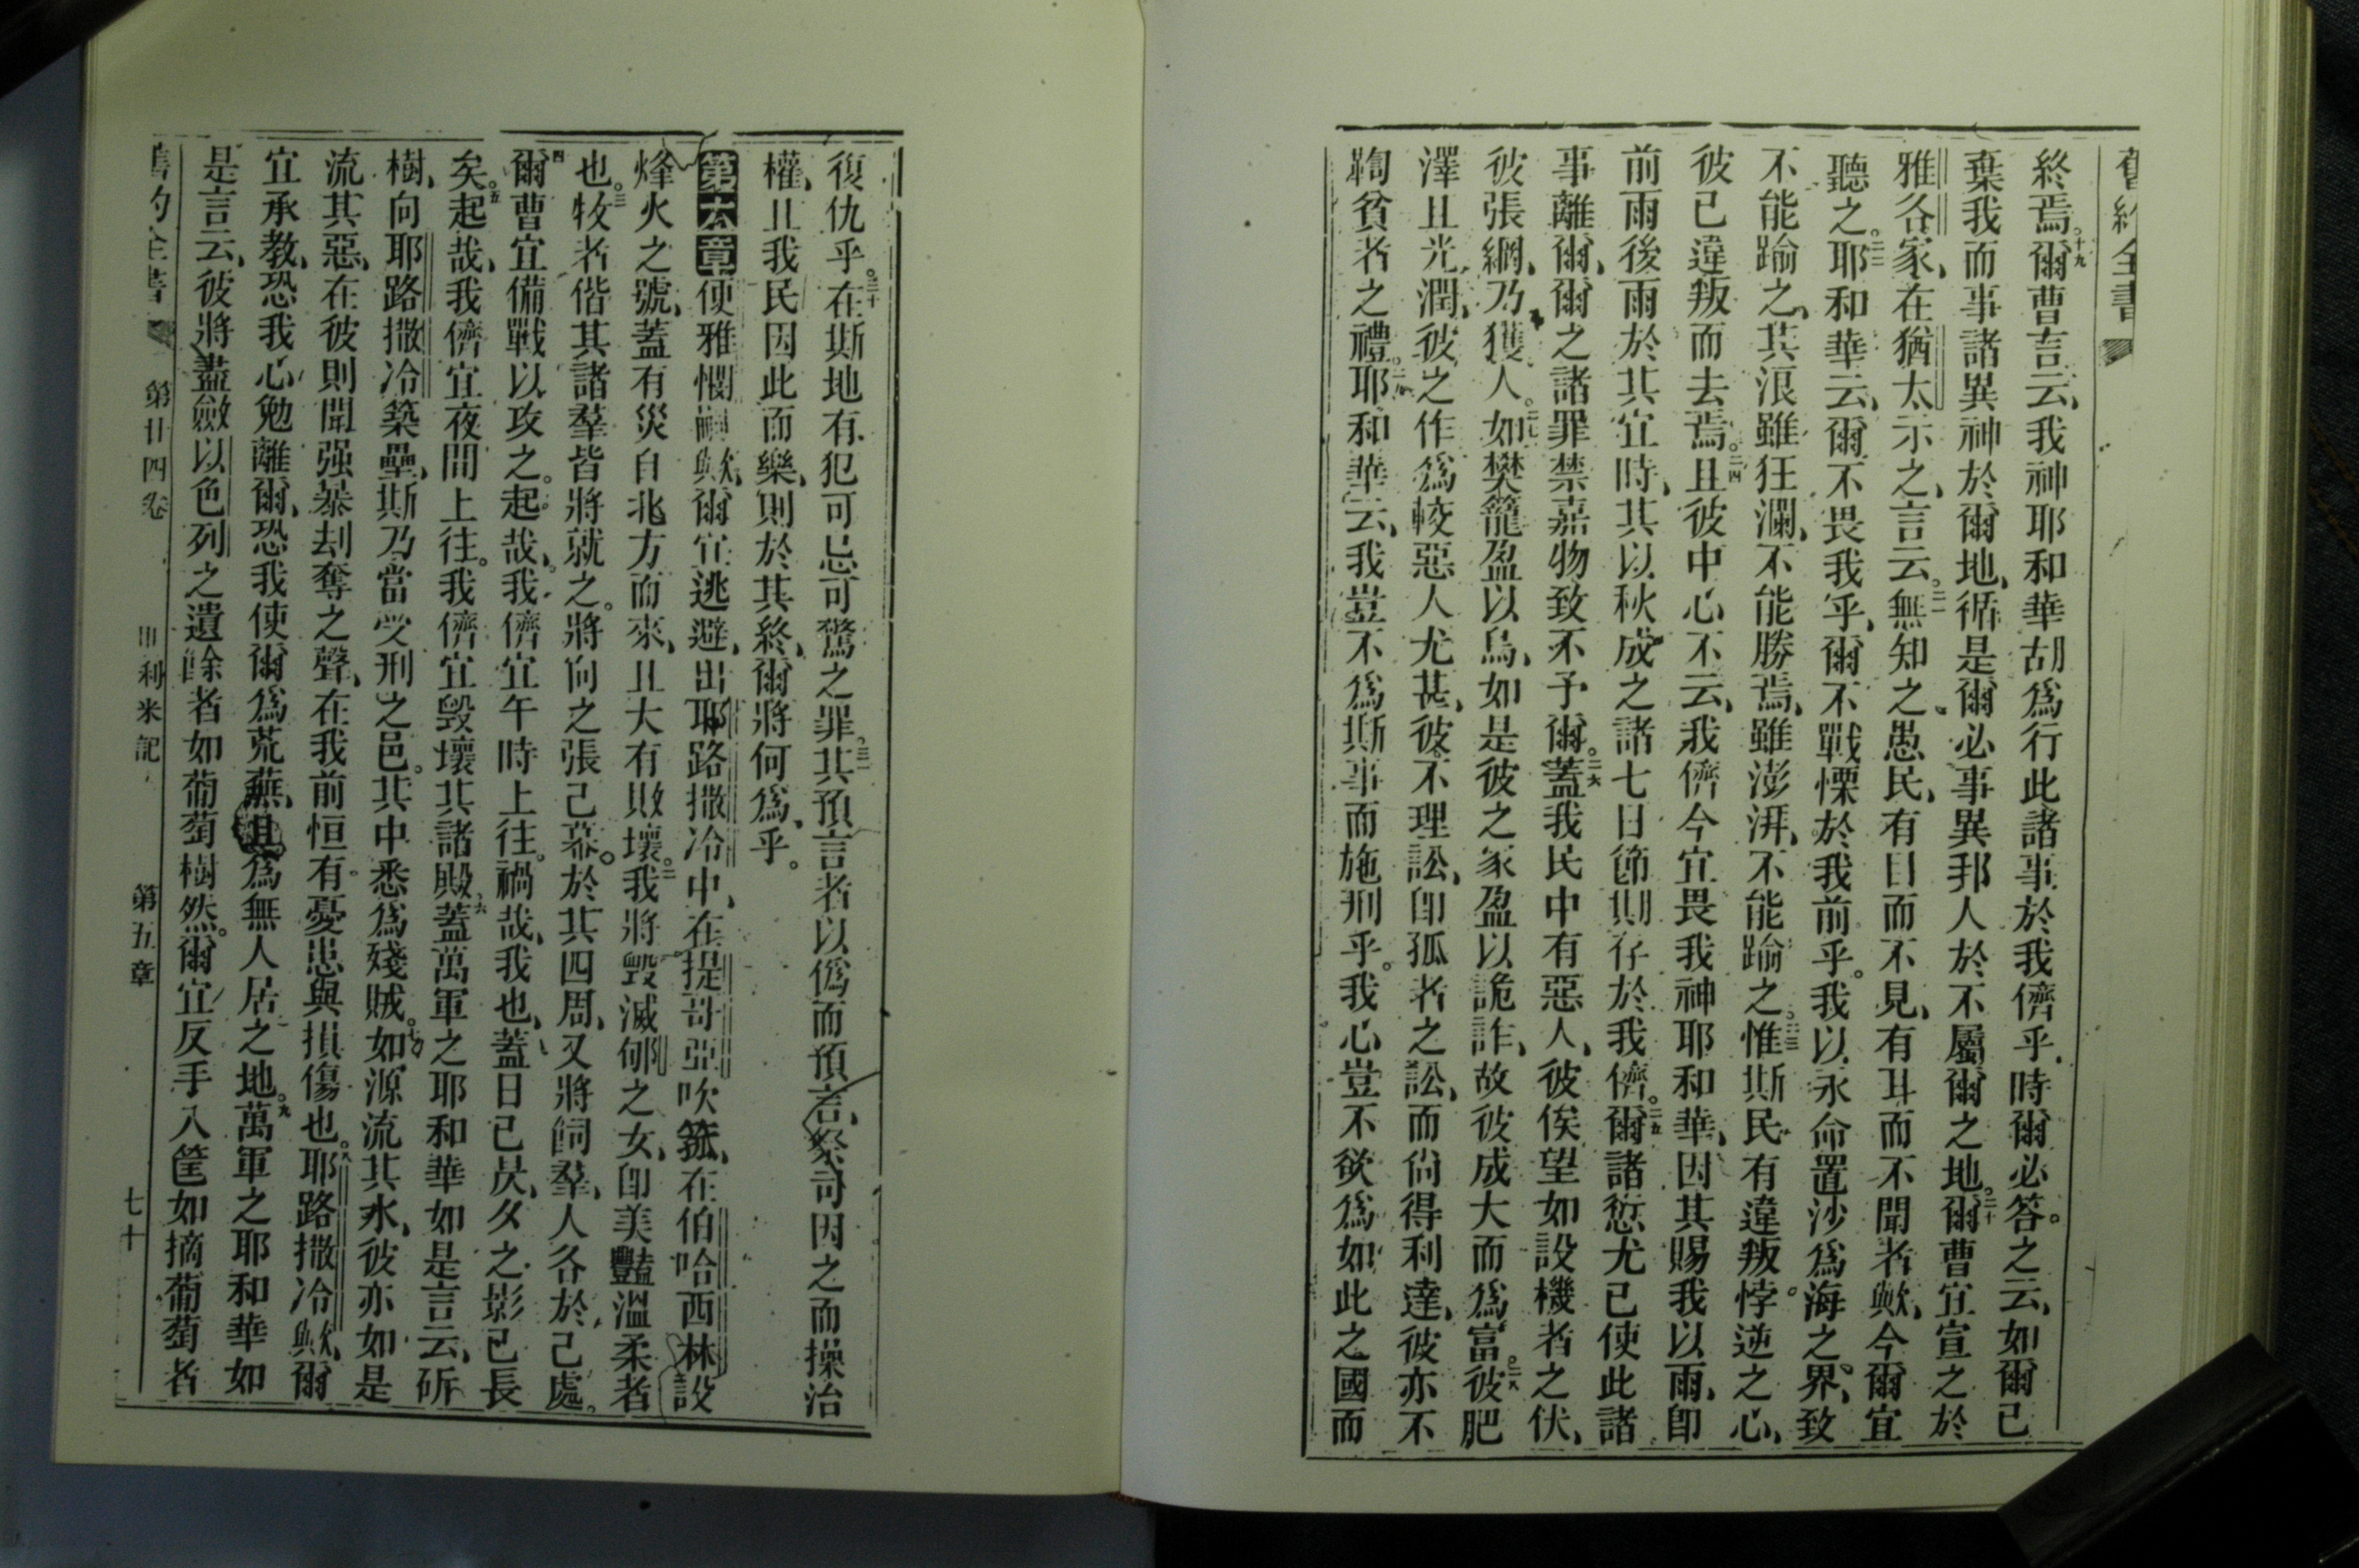 舊約全書
終焉。十九爾曹言云、我神耶和華胡爲行此諸事於我儕乎、時爾必答之云、如爾已
棄我而事諸異神於爾地、循是爾必事異邦人於不屬爾之地。二十爾曹宜宣之於
雅各家、在猶太示之、言云。二一無知之愚民、有目而不見、有耳而不聞者歟、今爾宜
聽之。二二耶和華云、爾不畏我乎、爾不戰慄於我前乎。我以永命置沙爲海之界、致
不能踰之、其浪雖狂瀾、不能勝焉、雖澎湃、不能踰之。二三惟斯民有違叛悖逆之心、
彼已違叛而去焉。二四且彼中心不云、我儕今宜畏我神耶和華、因其賜我以雨、卽
前雨後雨於其宜時、其以秋成之諸七日節期存於我儕。二五爾諸愆尤已使此諸
事離爾、爾之諸罪禁嘉物致不予爾。二六蓋我民中有惡人、彼俟望如設機者之伏、
彼張網、乃獲人。二七如樊籠盈以鳥、如是彼之家盈以詭詐、故彼成大而爲富。二八彼肥
澤且光潤、彼之作爲較惡人尤甚、彼不理訟、卽孤者之訟、而尙得利達、彼亦不
鞫貧者之禮。二九耶和華云、我豈不爲斯事而施刑乎。我心豈不欲爲如此之國而
復仇乎。三十在斯地有犯可忌可驚之罪。三一其預言者以僞而預言、祭司因之而操治
權、且我民因此而樂、則於其終、爾將何爲乎。
第六章便雅憫嗣歟、爾宜逃避、出耶路撒冷中、在提哥亞吹箛、在伯哈西林設
烽火之號、蓋有災自北方而來、且大有敗壞。二我將毀滅郇之女、卽美豔溫柔者
也。三牧者偕其諸羣皆將就之。將向之張己幕。於其四周、又將飼羣、人各於己處。
四爾曹宜備戰以攻之。起哉、我儕宜午時上往。禍哉、我也、蓋日已昃、夕之影已長
矣。五起哉、我儕宜夜間上往。我儕宜毀壞其諸殿。六蓋萬軍之耶和華如是言云、斫
樹、向耶路撒冷築壘、斯乃當受刑之邑。其中悉爲殘賊。七如源流其水、彼亦如是
流其惡、在彼則聞强暴刦奪之聲、在我前恒有憂患與損傷也。八耶路撒冷歟、爾
宜承教、恐我心勉離爾、恐我使爾爲荒蕪、且爲無人居之地。九萬軍之耶和華如
是言云、彼將盡斂以色列之遺餘者如葡萄樹然。爾宜反手入筐如摘葡萄者
舊約全書 第廿四卷 耶利米記 第五章 七十